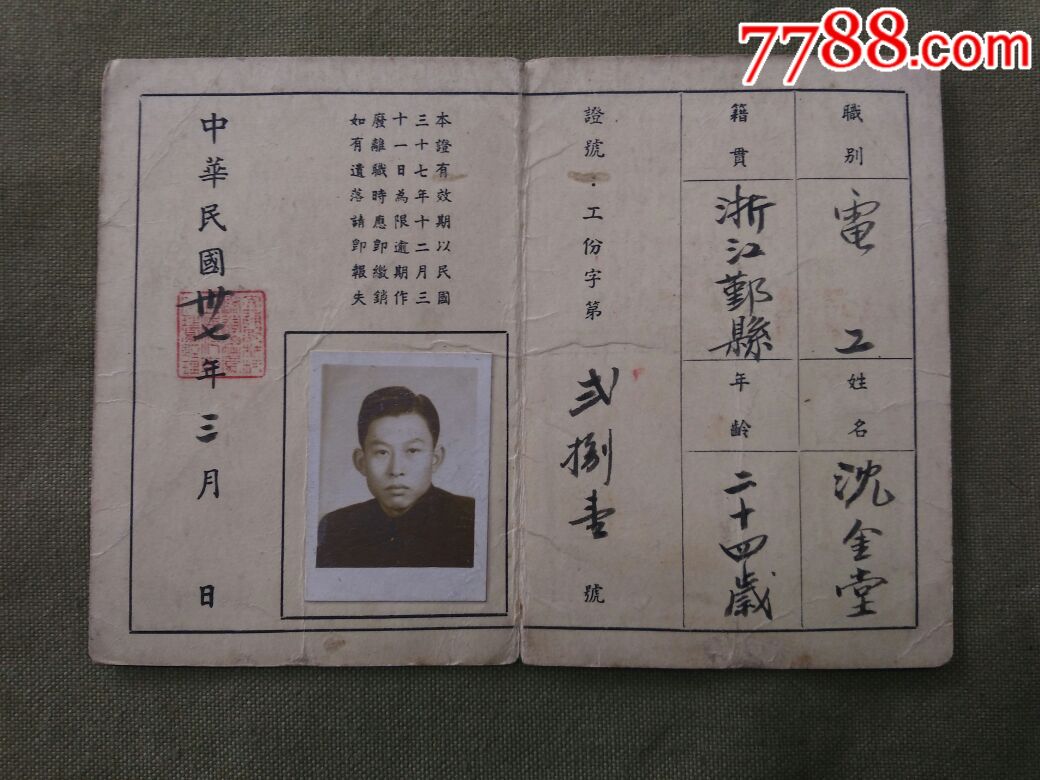 7788.com
職別
電工
姓名
沈金堂
籍貫
浙江鄞縣
年齡
二十四歲
證號·工份字第
弍捌壹
號
本證有效期以民國
三十七年十二月三
十一日為限逾期作
廢離職時應即繳銷
如有遺落請即報失
中華民國卅七年三月 日